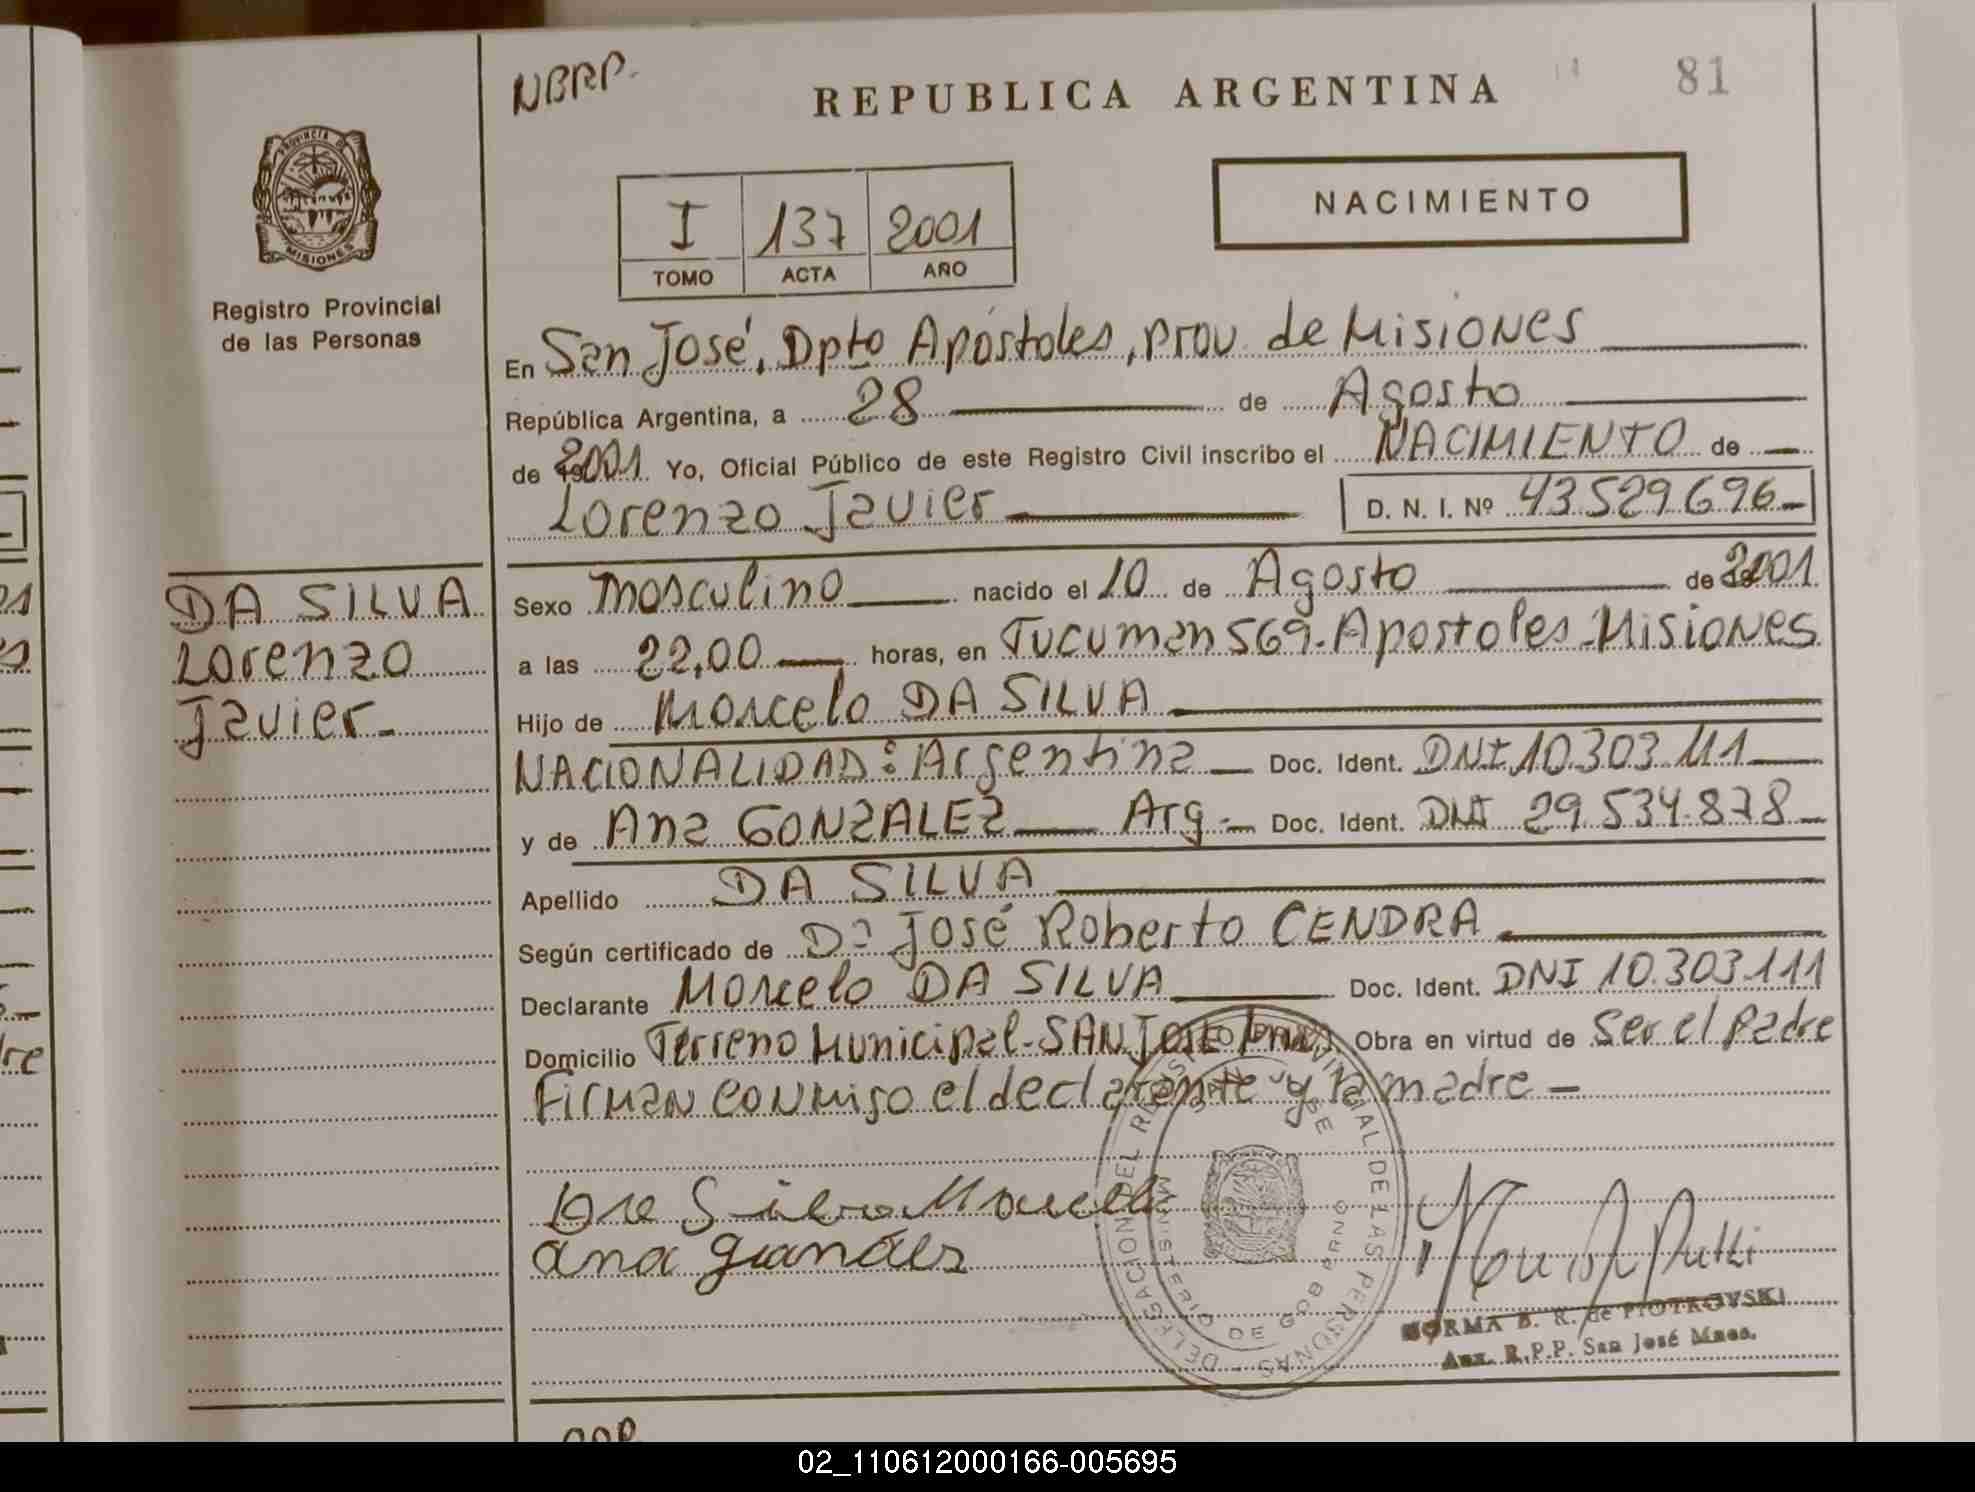 NBRP.
REPUBLICA ARGENTINA
81
PROVINCIA DE
MISIONES
Registro Provincial
de las Personas
I 137 2001
TOMO ACTA AÑO
NACIMIENTO
En San José, Dpto Apóstoles, prov. de Misiones
República Argentina, a 28 de Agosto
de 2001 Yo, Oficial Público de este Registro Civil inscribo el NACIMIENTO de
Lorenzo Javier D. N. I. Nº 43.529.696
DA SILVA
Lorenzo
Javier
Sexo masculino nacido el 10 de Agosto de 2001
a las 22,00 horas, en Tucuman 569. Apostoles - Misiones
Hijo de Marcelo DA SILVA
NACIONALIDAD: Argentina Doc. Ident. DNI 10.303.111
y de Ana GONZALEZ Arg. Doc. Ident. DNI 29.534.878
Apellido DA SILVA
Según certificado de Dº José Roberto CENDRA
Declarante Marcelo DA SILVA Doc. Ident. DNI 10.303.111
Domicilio Terreno Municipal - SAN José Obra en virtud de Ser el padre
Firman conmigo el declarante y la madre
NORMA B. R. de PIOTROVSKI
Aux. R.P.P. San José Mnes.
DELEGACION DEL REGISTRO PROVINCIAL DE LAS PERSONAS
SAN JOSE
MINISTERIO DE GOBIERNO
02_110612000166-005695